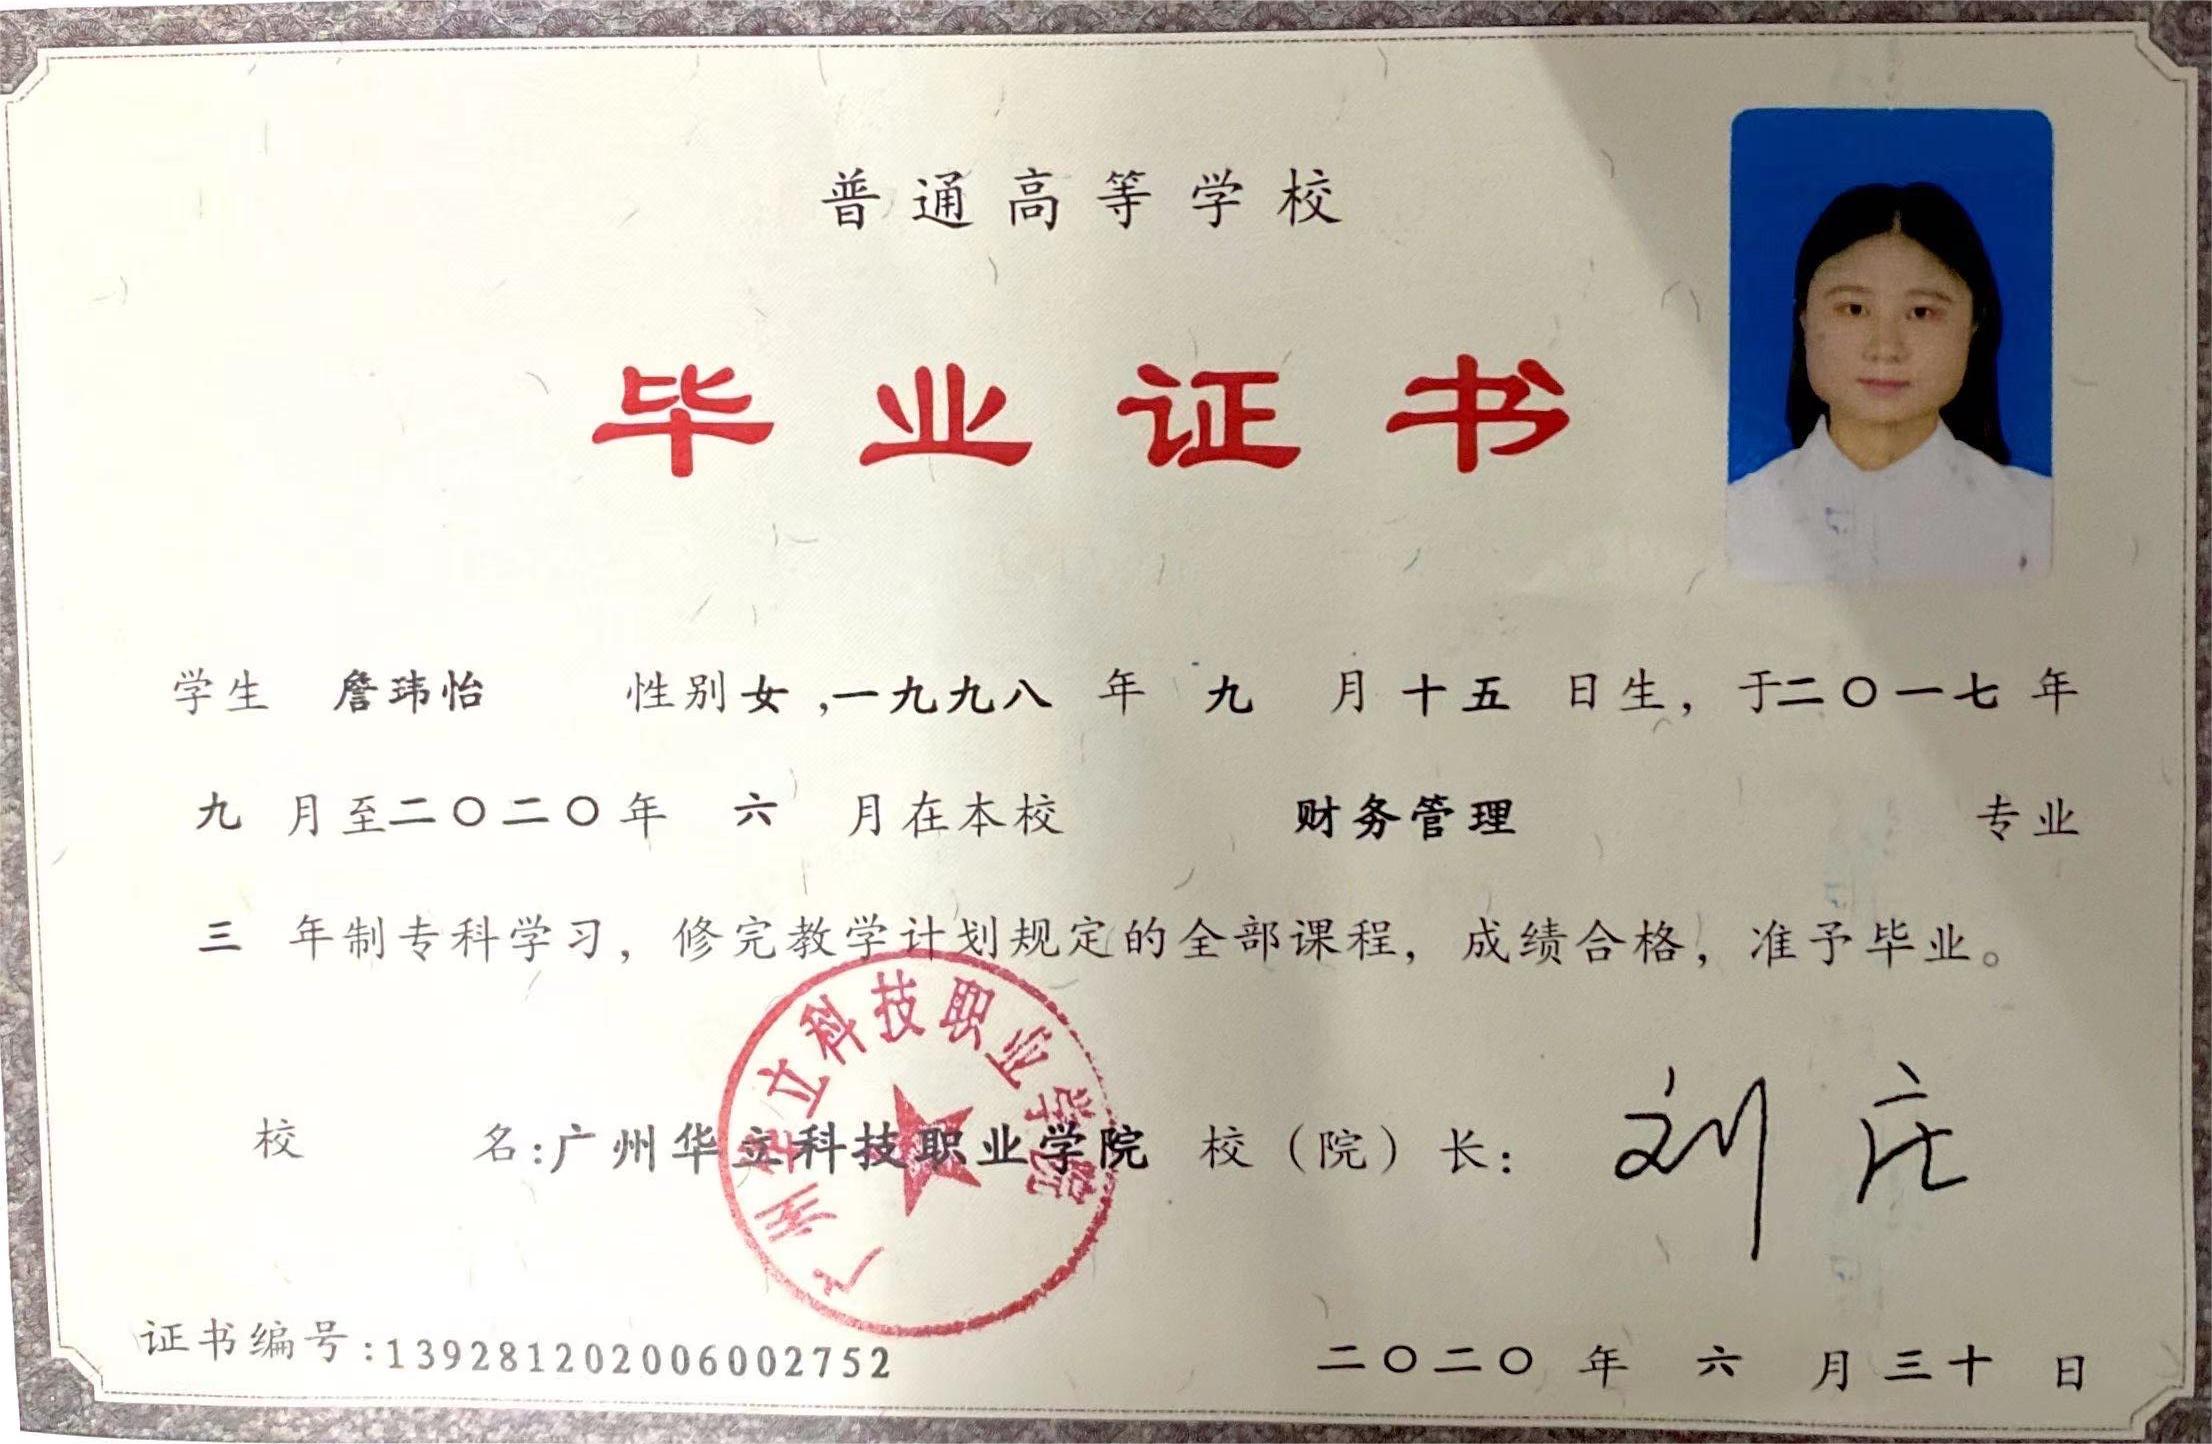 普通高等学校
毕业证书
学生 詹玮怡 性别女,一九九八 年 九 月十五 日生，于二〇一七年
九 月至二〇二〇年 六 月在本校 财务管理 专业
三 年制专科学习，修完教学计划规定的全部课程，成绩合格，准予毕业。
广州华立科技职业学院
校 名:广州华立科技职业学院 校（院）长：刘庄
证书编号:139281202006002752
二〇二〇 年 六 月三十 日